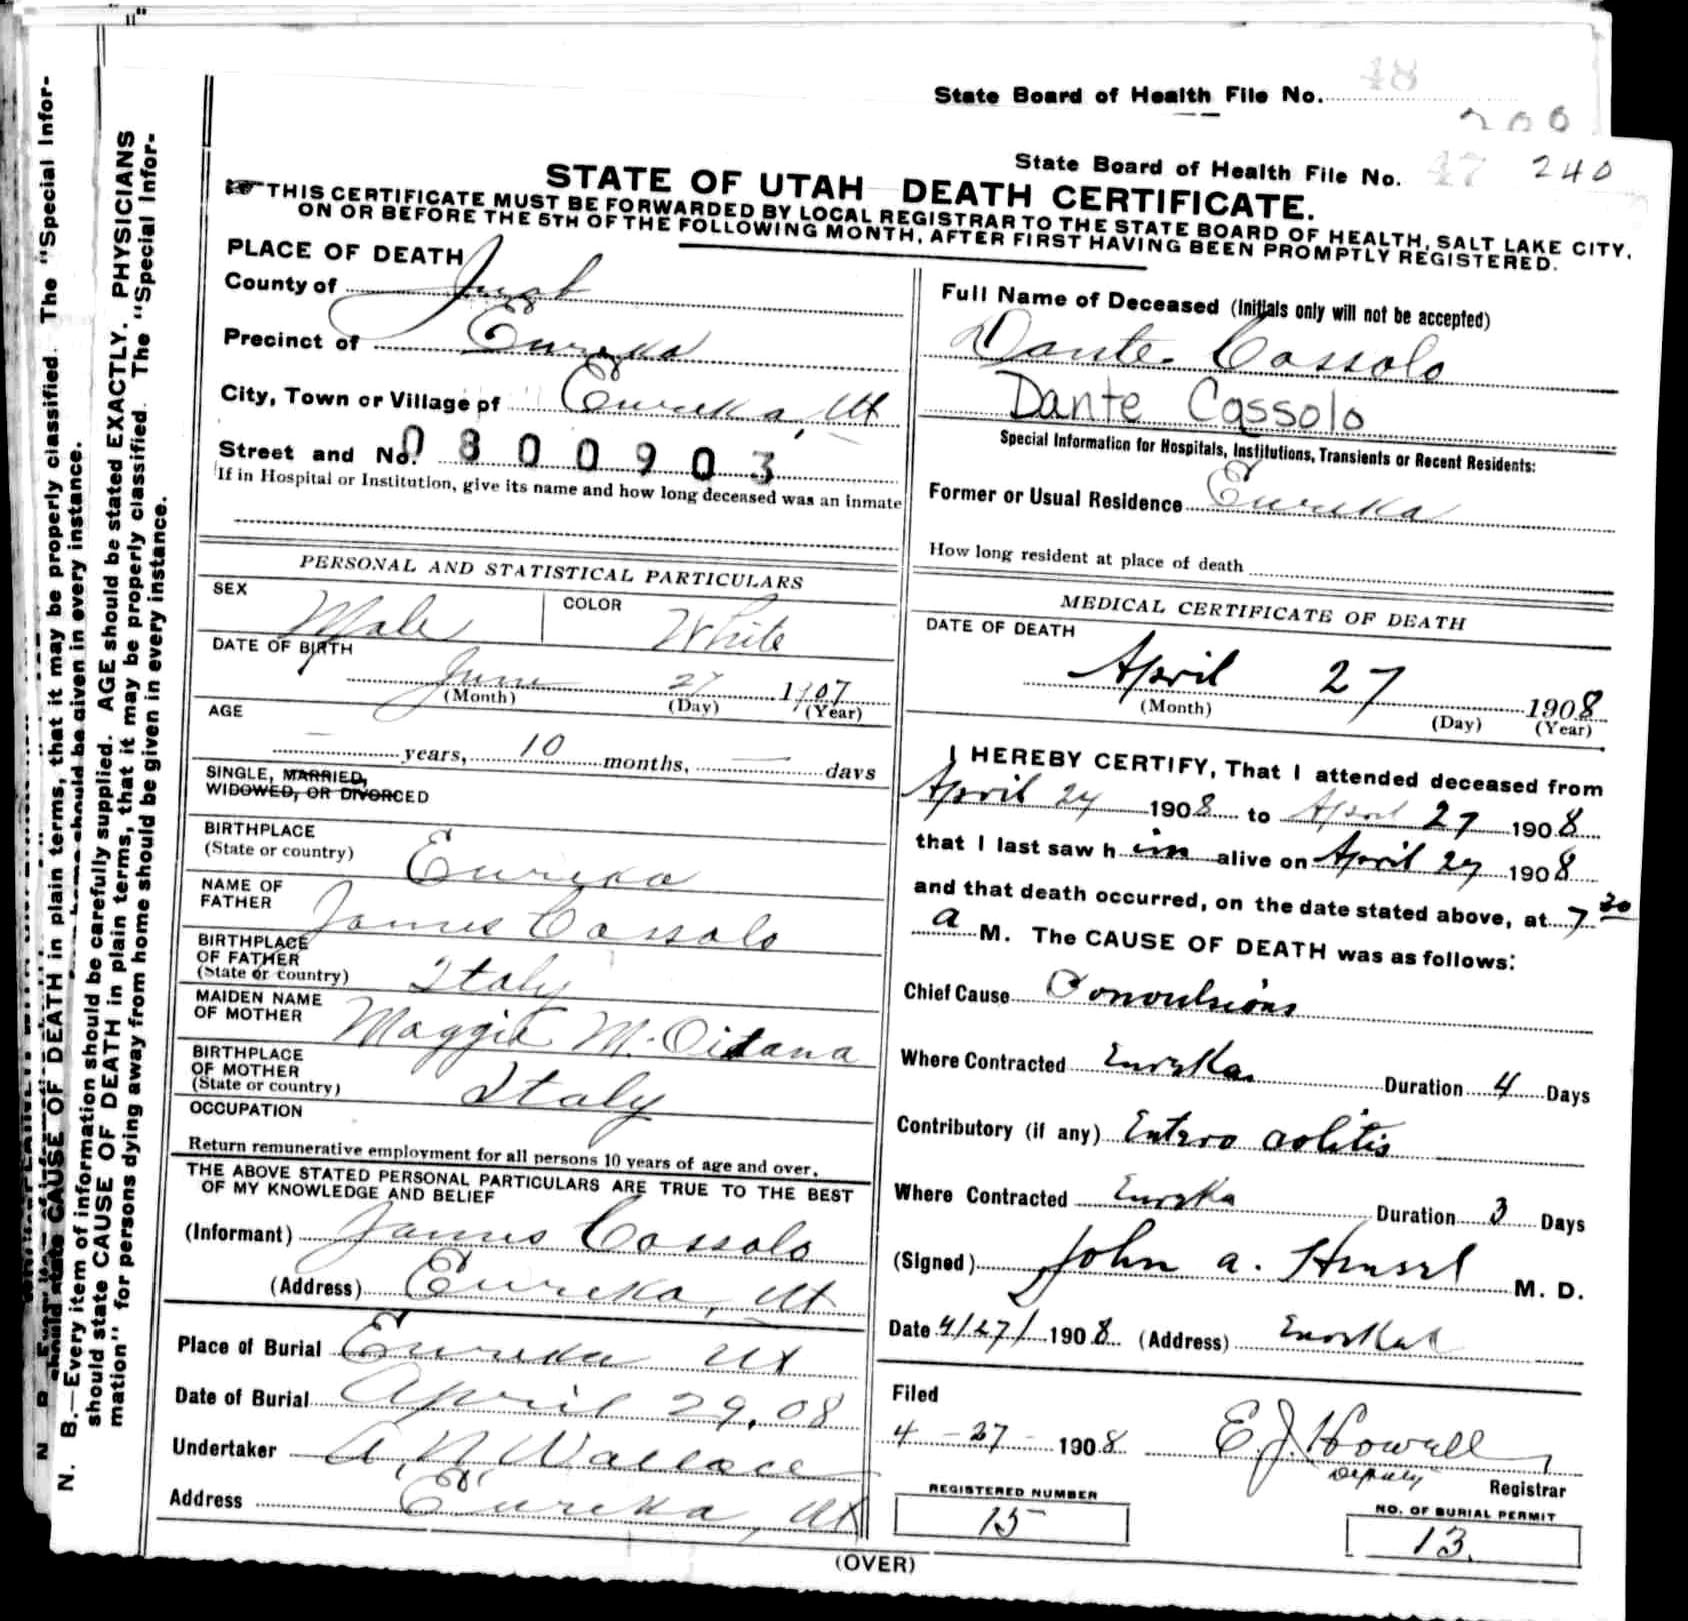 State Board of Health File No. 48
200
State Board of Health File No. 47 240
STATE OF UTAH DEATH CERTIFICATE.
THIS CERTIFICATE MUST BE FORWARDED BY LOCAL REGISTRAR TO THE STATE BOARD OF HEALTH, SALT LAKE CITY,
ON OR BEFORE THE 5TH OF THE FOLLOWING MONTH, AFTER FIRST HAVING BEEN PROMPTLY REGISTERED.
PLACE OF DEATH
County of Juab
Precinct of Eureka
City, Town or Village of Eureka, Ut
Street and No. 0800903
If in Hospital or Institution, give its name and how long deceased was an inmate
PERSONAL AND STATISTICAL PARTICULARS
SEX Male COLOR White
DATE OF BIRTH
June 27 1907
(Month) (Day) (Year)
AGE
— years, 10 months, — days
SINGLE, MARRIED,
WIDOWED, OR DIVORCED
BIRTHPLACE
(State or country) Eureka
NAME OF
FATHER James Cassolo
BIRTHPLACE
OF FATHER
(State or country) Italy
MAIDEN NAME
OF MOTHER Maggie M.
BIRTHPLACE
OF MOTHER
(State or country) Italy
OCCUPATION
Return remunerative employment for all persons 10 years of age and over.
THE ABOVE STATED PERSONAL PARTICULARS ARE TRUE TO THE BEST
OF MY KNOWLEDGE AND BELIEF
(Informant) James Cassolo
(Address) Eureka, Ut
Place of Burial Eureka Ut
Date of Burial April 29, 08
Undertaker A. N. Wallace
Address Eureka, Ut
Full Name of Deceased (Initials only will not be accepted)
Dante Cassolo
Dante Cassolo
Special Information for Hospitals, Institutions, Transients or Recent Residents:
Former or Usual Residence Eureka
How long resident at place of death
MEDICAL CERTIFICATE OF DEATH
DATE OF DEATH
April 27 1908
(Month) (Day) (Year)
I HEREBY CERTIFY, That I attended deceased from
April 24 1908 to April 27 1908
that I last saw him alive on April 27 1908
and that death occurred, on the date stated above, at 7 30
a M. The CAUSE OF DEATH was as follows:
Chief Cause Convulsions
Where Contracted Eureka Duration 4 Days
Contributory (if any) Entero colitis
Where Contracted Eureka Duration 3 Days
(Signed) John A. Hensel M. D.
Date 4/27/ 1908 (Address) Eureka
Filed
4 - 27 - 1908 E. J. Howell
Deputy Registrar
REGISTERED NUMBER
15
NO. OF BURIAL PERMIT
13.
(OVER)
N. B.—Every item of information should be carefully supplied. AGE should be stated EXACTLY. PHYSICIANS
should state CAUSE OF DEATH in plain terms, that it may be properly classified. The "Special Infor-
mation" for persons dying away from home should be given in every instance.